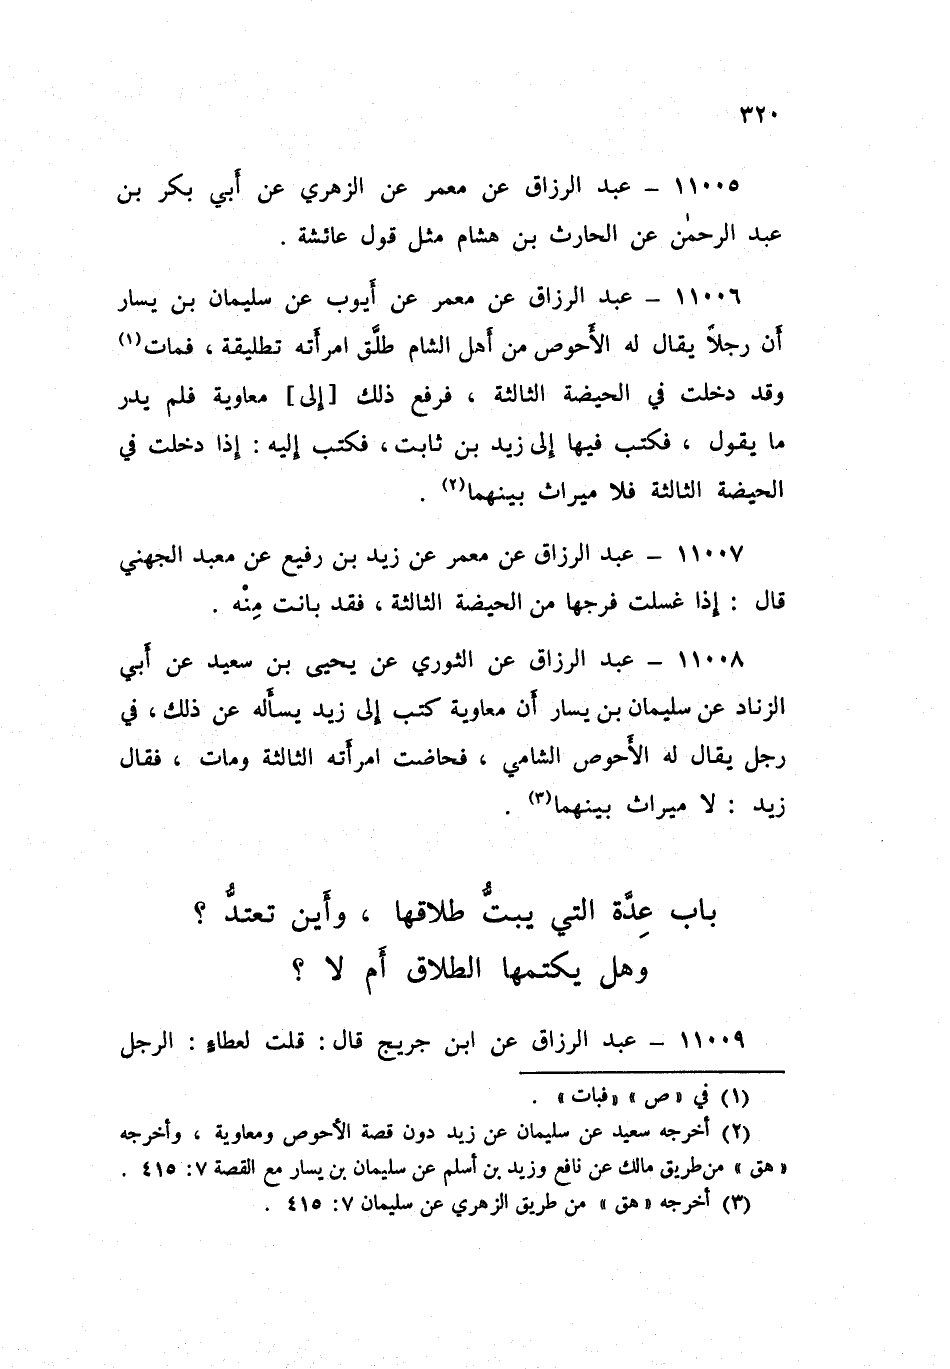 ٣٢٠
١١٠٠٥ – عبد الرزاق عن معمر عن الزهري عن أَبي بكر بن
عبد الرحمٰن عن الحارث بن هشام مثل قول عائشة .
١١٠٠٦ – عبد الرزاق عن معمر عن أَيوب عن سليمان بن يسار
أَن رجلاً يقال له الأَحوص من أَهل الشام طلَّق امرأَته تطليقة ، فمات(١)
وقد دخلت في الحيضة الثالثة ، فرفع ذلك [إلى] معاوية فلم يدر
ما يقول ، فكتب فيها إلى زيد بن ثابت ، فكتب إليه : إذا دخلت في
الحيضة الثالثة فلا ميراث بينهما(٢) .
١١٠٠٧ – عبد الرزاق عن معمر عن زيد بن رفيع عن معبد الجهني
قال : إذا غسلت فرجها من الحيضة الثالثة ، فقد بانت مِنْه .
١١٠٠٨ – عبد الرزاق عن الثوري عن يحيى بن سعيد عن أَبي
الزناد عن سليمان بن يسار أَن معاوية كتب إلى زيد يسأَله عن ذلك ، في
رجل يقال له الأَحوص الشامي ، فحاضت امرأَته الثالثة ومات ، فقال
زيد : لا ميراث بينهما(٣) .
باب عِدَّة التي يبتُّ طلاقها ، وأَين تعتدُّ ؟
وهل يكتمها الطلاق أَم لا ؟
١١٠٠٩ – عبد الرزاق عن ابن جريج قال : قلت لعطاءٍ : الرجل
(١) في « ص » « فبات » .
(٢) أخرجه سعيد عن سليمان عن زيد دون قصة الأحوص ومعاوية ، وأخرجه
« هق » من طريق مالك عن نافع وزيد بن أسلم عن سليمان بن يسار مع القصة ٧: ٤١٥ .
(٣) أخرجه « هق » من طريق الزهري عن سليمان ٧: ٤١٥ .